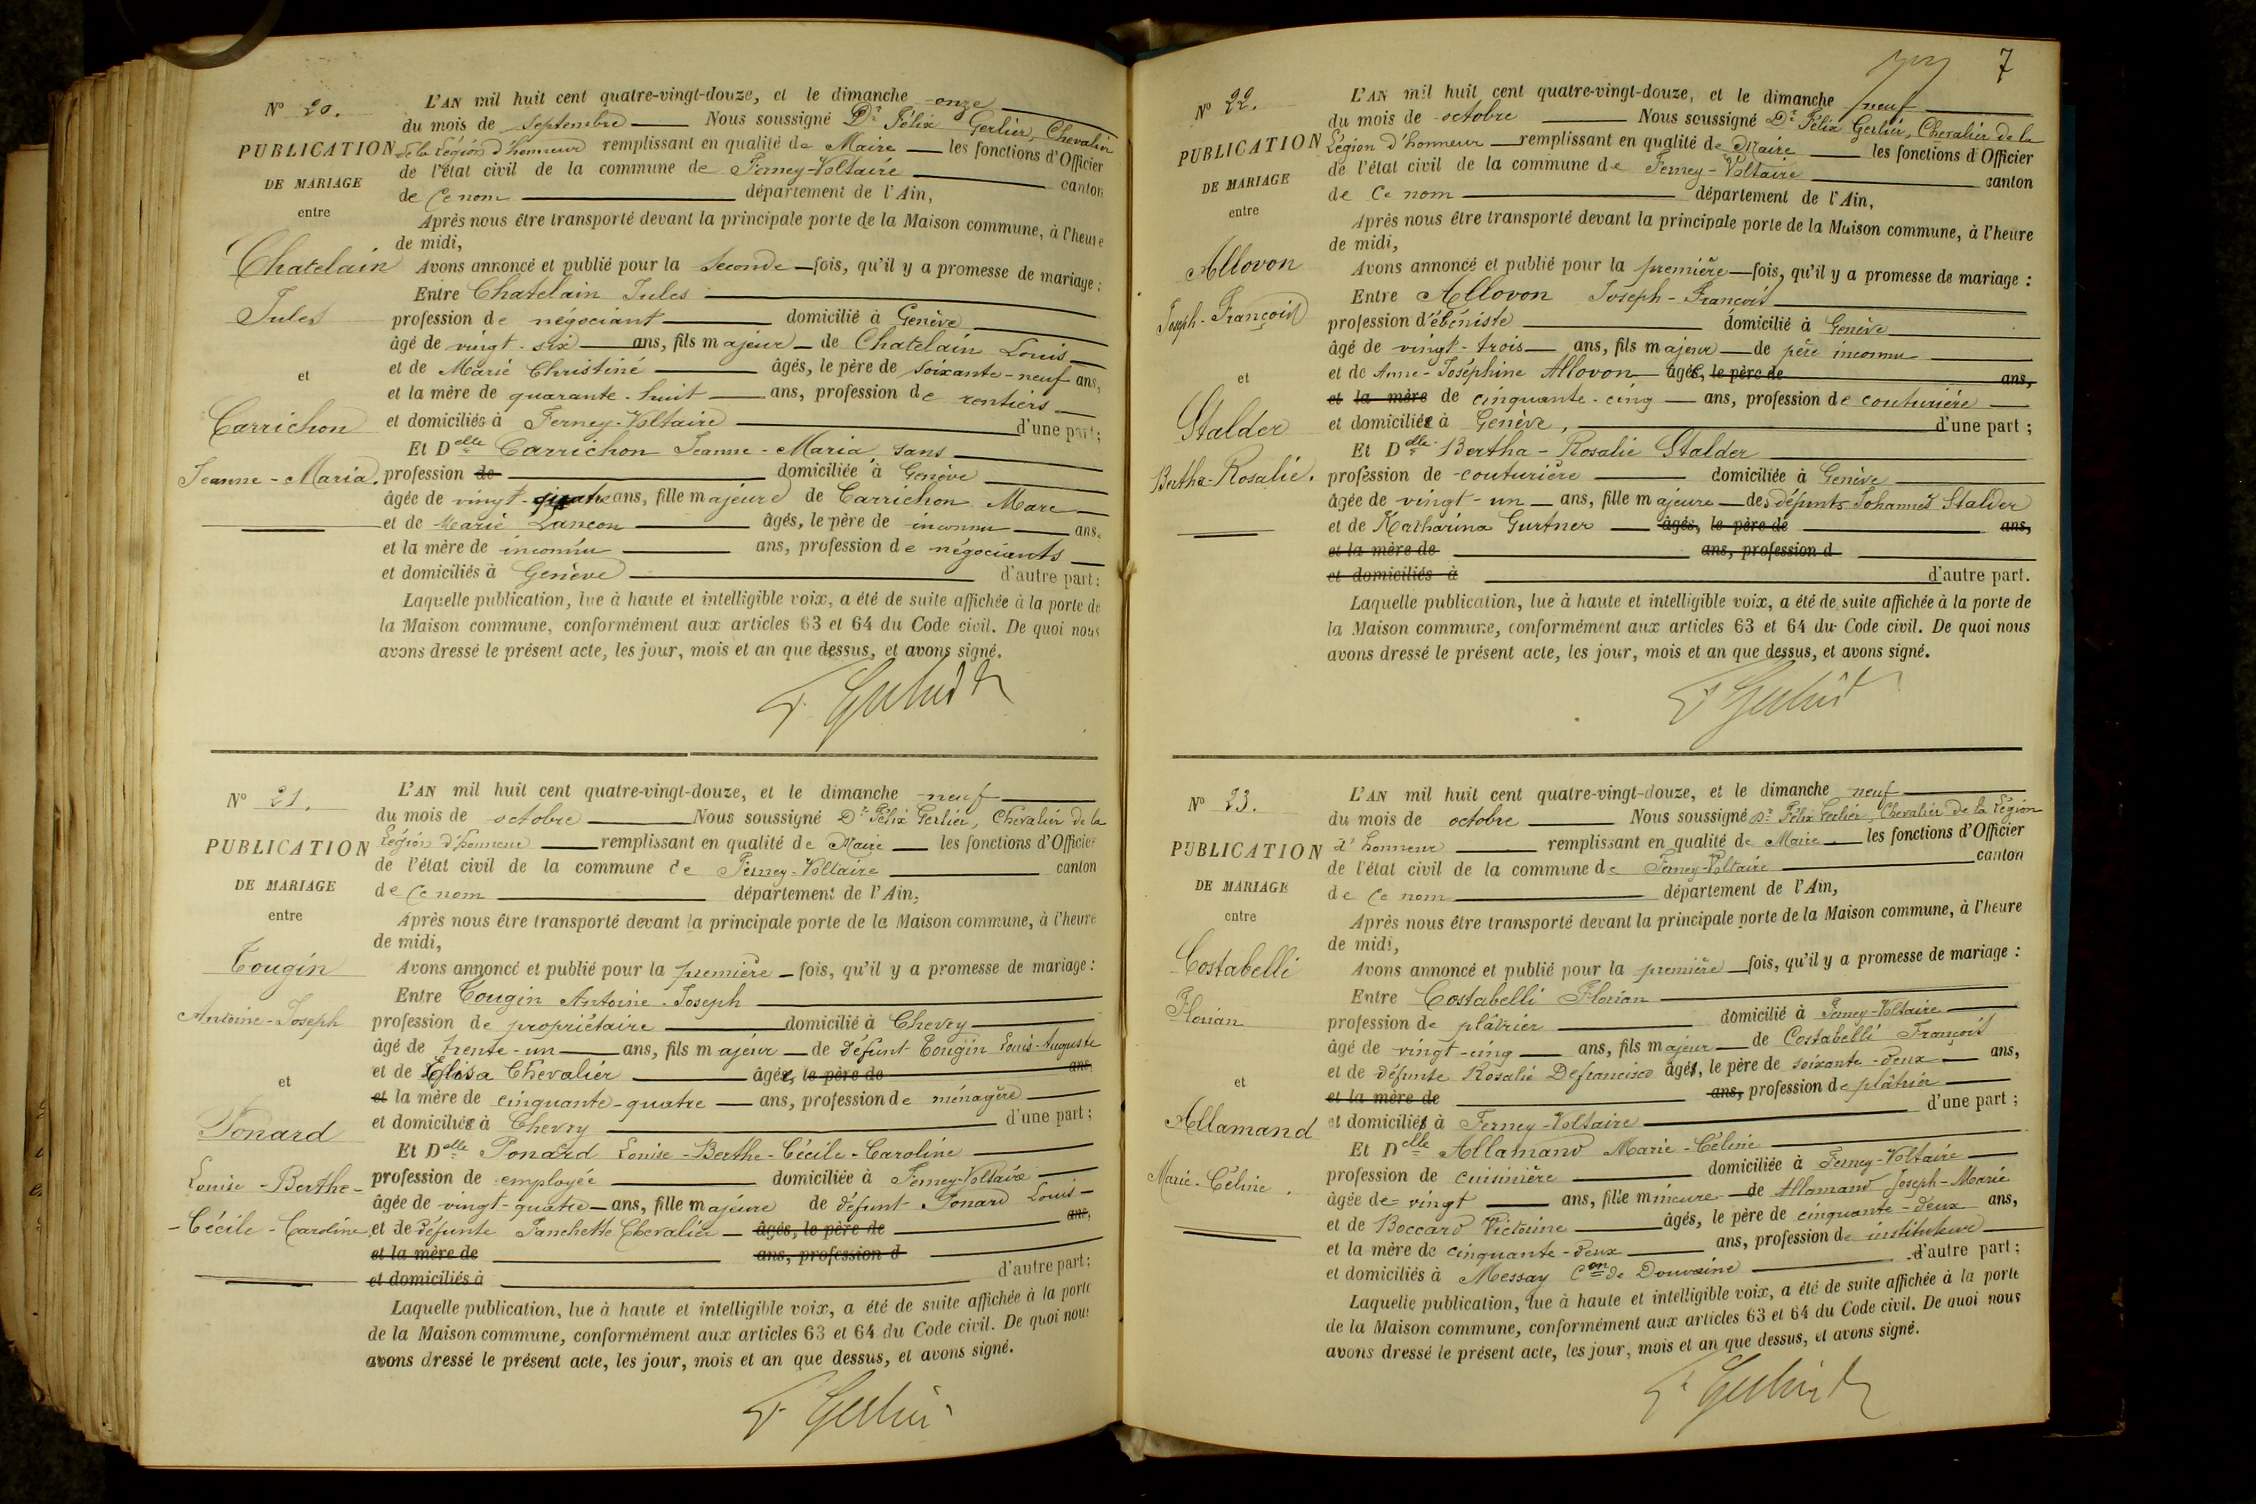 N° 20.
PUBLICATION
DE MARIAGE
entre
Chatelain
Jules
et
Carrichon
Jeanne-Maria.
L'AN mil huit cent quatre-vingt-douze, et le dimanche onze
du mois de septembre Nous soussigné Dr Félix Gerlier, Chevalier
de la Légion d'honneur remplissant en qualité de Maire les fonctions d'Officier
de l'état civil de la commune de Ferney-Voltaire canton
de Ce nom département de l'Ain,
Après nous être transporté devant la principale porte de la Maison commune, à l'heure
de midi,
Avons annoncé et publié pour la seconde fois, qu'il y a promesse de mariage :
Entre Chatelain Jules
profession de négociant domicilié à Genève
âgé de vingt-six ans, fils majeur de Chatelain Louis
et de Marie Christine âgés, le père de soixante-neuf ans,
et la mère de quarante-huit ans, profession de rentiers
et domiciliés à Ferney-Voltaire d'une part;
Et Delle Carrichon Jeanne-Maria sans
profession de domiciliée à Genève
âgée de vingt-quatre ans, fille majeure de Carrichon Marc
et de Marie Lançon âgés, le père de inconnu ans.
et la mère de inconnu ans, profession de négociants
et domiciliés à Genève d'autre part;
Laquelle publication, lue à haute et intelligible voix, a été de suite affichée à la porte de
la Maison commune, conformément aux articles 63 et 64 du Code civil. De quoi nous
avons dressé le présent acte, les jour, mois et an que dessus, et avons signé.
F. Gerlier
N° 21.
PUBLICATION
DE MARIAGE
entre
Tougin
Antoine-Joseph
et
Ponard
Louise-Berthe-
-Cécile-Caroline
L'AN mil huit cent quatre-vingt-douze, et le dimanche neuf
du mois de octobre Nous soussigné Dr Félix Gerlier, Chevalier de la
Légion d'honneur remplissant en qualité de Maire les fonctions d'Officier
de l'état civil de la commune de Ferney-Voltaire canton
de Ce nom département de l'Ain,
Après nous être transporté devant la principale porte de la Maison commune, à l'heure
de midi,
Avons annoncé et publié pour la première fois, qu'il y a promesse de mariage :
Entre Tougin Antoine-Joseph
profession de propriétaire domicilié à Chevry
âgé de trente-un ans, fils majeur de défunt Tougin Louis-Auguste
et de Elisa Chevalier âgée, le père de ans,
et la mère de cinquante-quatre ans, profession de ménagère
et domiciliée à Chevry d'une part;
Et Delle Ponard Louise-Berthe-Cécile-Caroline
profession de employée domiciliée à Ferney-Voltaire
âgée de vingt-quatre ans, fille majeure de défunt Ponard Louis
et de défunte Fanchette Chevalier âgés, le père de ans,
et la mère de ans, profession d
et domiciliés à d'autre part;
Laquelle publication, lue à haute et intelligible voix, a été de suite affichée à la porte
de la Maison commune, conformément aux articles 63 et 64 du Code civil. De quoi nous
avons dressé le présent acte, les jour, mois et an que dessus, et avons signé.
F. Gerlier
7
N° 22.
PUBLICATION
DE MARIAGE
entre
Allovon
Joseph-François
et
Stalder
Bertha-Rosalie.
L'AN mil huit cent quatre-vingt-douze, et le dimanche neuf
du mois de octobre Nous soussigné Dr Félix Gerlier, Chevalier de la
Légion d'honneur remplissant en qualité de Maire les fonctions d'Officier
de l'état civil de la commune de Ferney-Voltaire canton
de Ce nom département de l'Ain,
Après nous être transporté devant la principale porte de la Maison commune, à l'heure
de midi,
Avons annoncé et publié pour la première fois, qu'il y a promesse de mariage :
Entre Allovon Joseph-François
profession d'ébéniste domicilié à Genève
âgé de vingt-trois ans, fils majeur de père inconnu
et de Anne-Joséphine Allovon âgée, le père de ans,
et la mère de cinquante-cinq ans, profession de couturière
et domiciliée à Genève, d'une part ;
Et Delle Bertha-Rosalie Stalder
profession de couturière domiciliée à Genève
âgée de vingt-un ans, fille majeure de défunts Johannes Stalder
et de Katharina Gurtner âgés, le père de ans,
et la mère de ans, profession d
et domiciliés à d'autre part.
Laquelle publication, lue à haute et intelligible voix, a été de suite affichée à la porte de
la Maison commune, conformément aux articles 63 et 64 du Code civil. De quoi nous
avons dressé le présent acte, les jour, mois et an que dessus, et avons signé.
F. Gerlier
N° 23.
PUBLICATION
DE MARIAGE
entre
Costabelli
Florian
et
Allamand
Marie-Céline.
L'AN mil huit cent quatre-vingt-douze, et le dimanche neuf
du mois de octobre Nous soussigné Dr Félix Gerlier, Chevalier de la Légion
d'honneur remplissant en qualité de Maire les fonctions d'Officier
de l'état civil de la commune de Ferney-Voltaire canton
de Ce nom département de l'Ain,
Après nous être transporté devant la principale porte de la Maison commune, à l'heure
de midi,
Avons annoncé et publié pour la première fois, qu'il y a promesse de mariage :
Entre Costabelli Florian
profession de plâtrier domicilié à Ferney-Voltaire
âgé de vingt-cinq ans, fils majeur de Costabelli François
et de défunte Rosalie Defrancisco âgé, le père de soixante-deux ans,
et la mère de ans, profession de plâtrier
et domicilié à Ferney-Voltaire d'une part ;
Et Delle Allamand Marie-Céline
profession de cuisinière domiciliée à Ferney-Voltaire
âgée de vingt ans, fille mineure de Allamand Joseph-Marie
et de Boccard Victorine âgés, le père de cinquante-deux ans,
et la mère de cinquante-deux ans, profession de instituteur
et domiciliés à Messay Con de Douvaine d'autre part ;
Laquelle publication, lue à haute et intelligible voix, a été de suite affichée à la porte
de la Maison commune, conformément aux articles 63 et 64 du Code civil. De quoi nous
avons dressé le présent acte, les jour, mois et an que dessus, et avons signé.
F. Gerlier